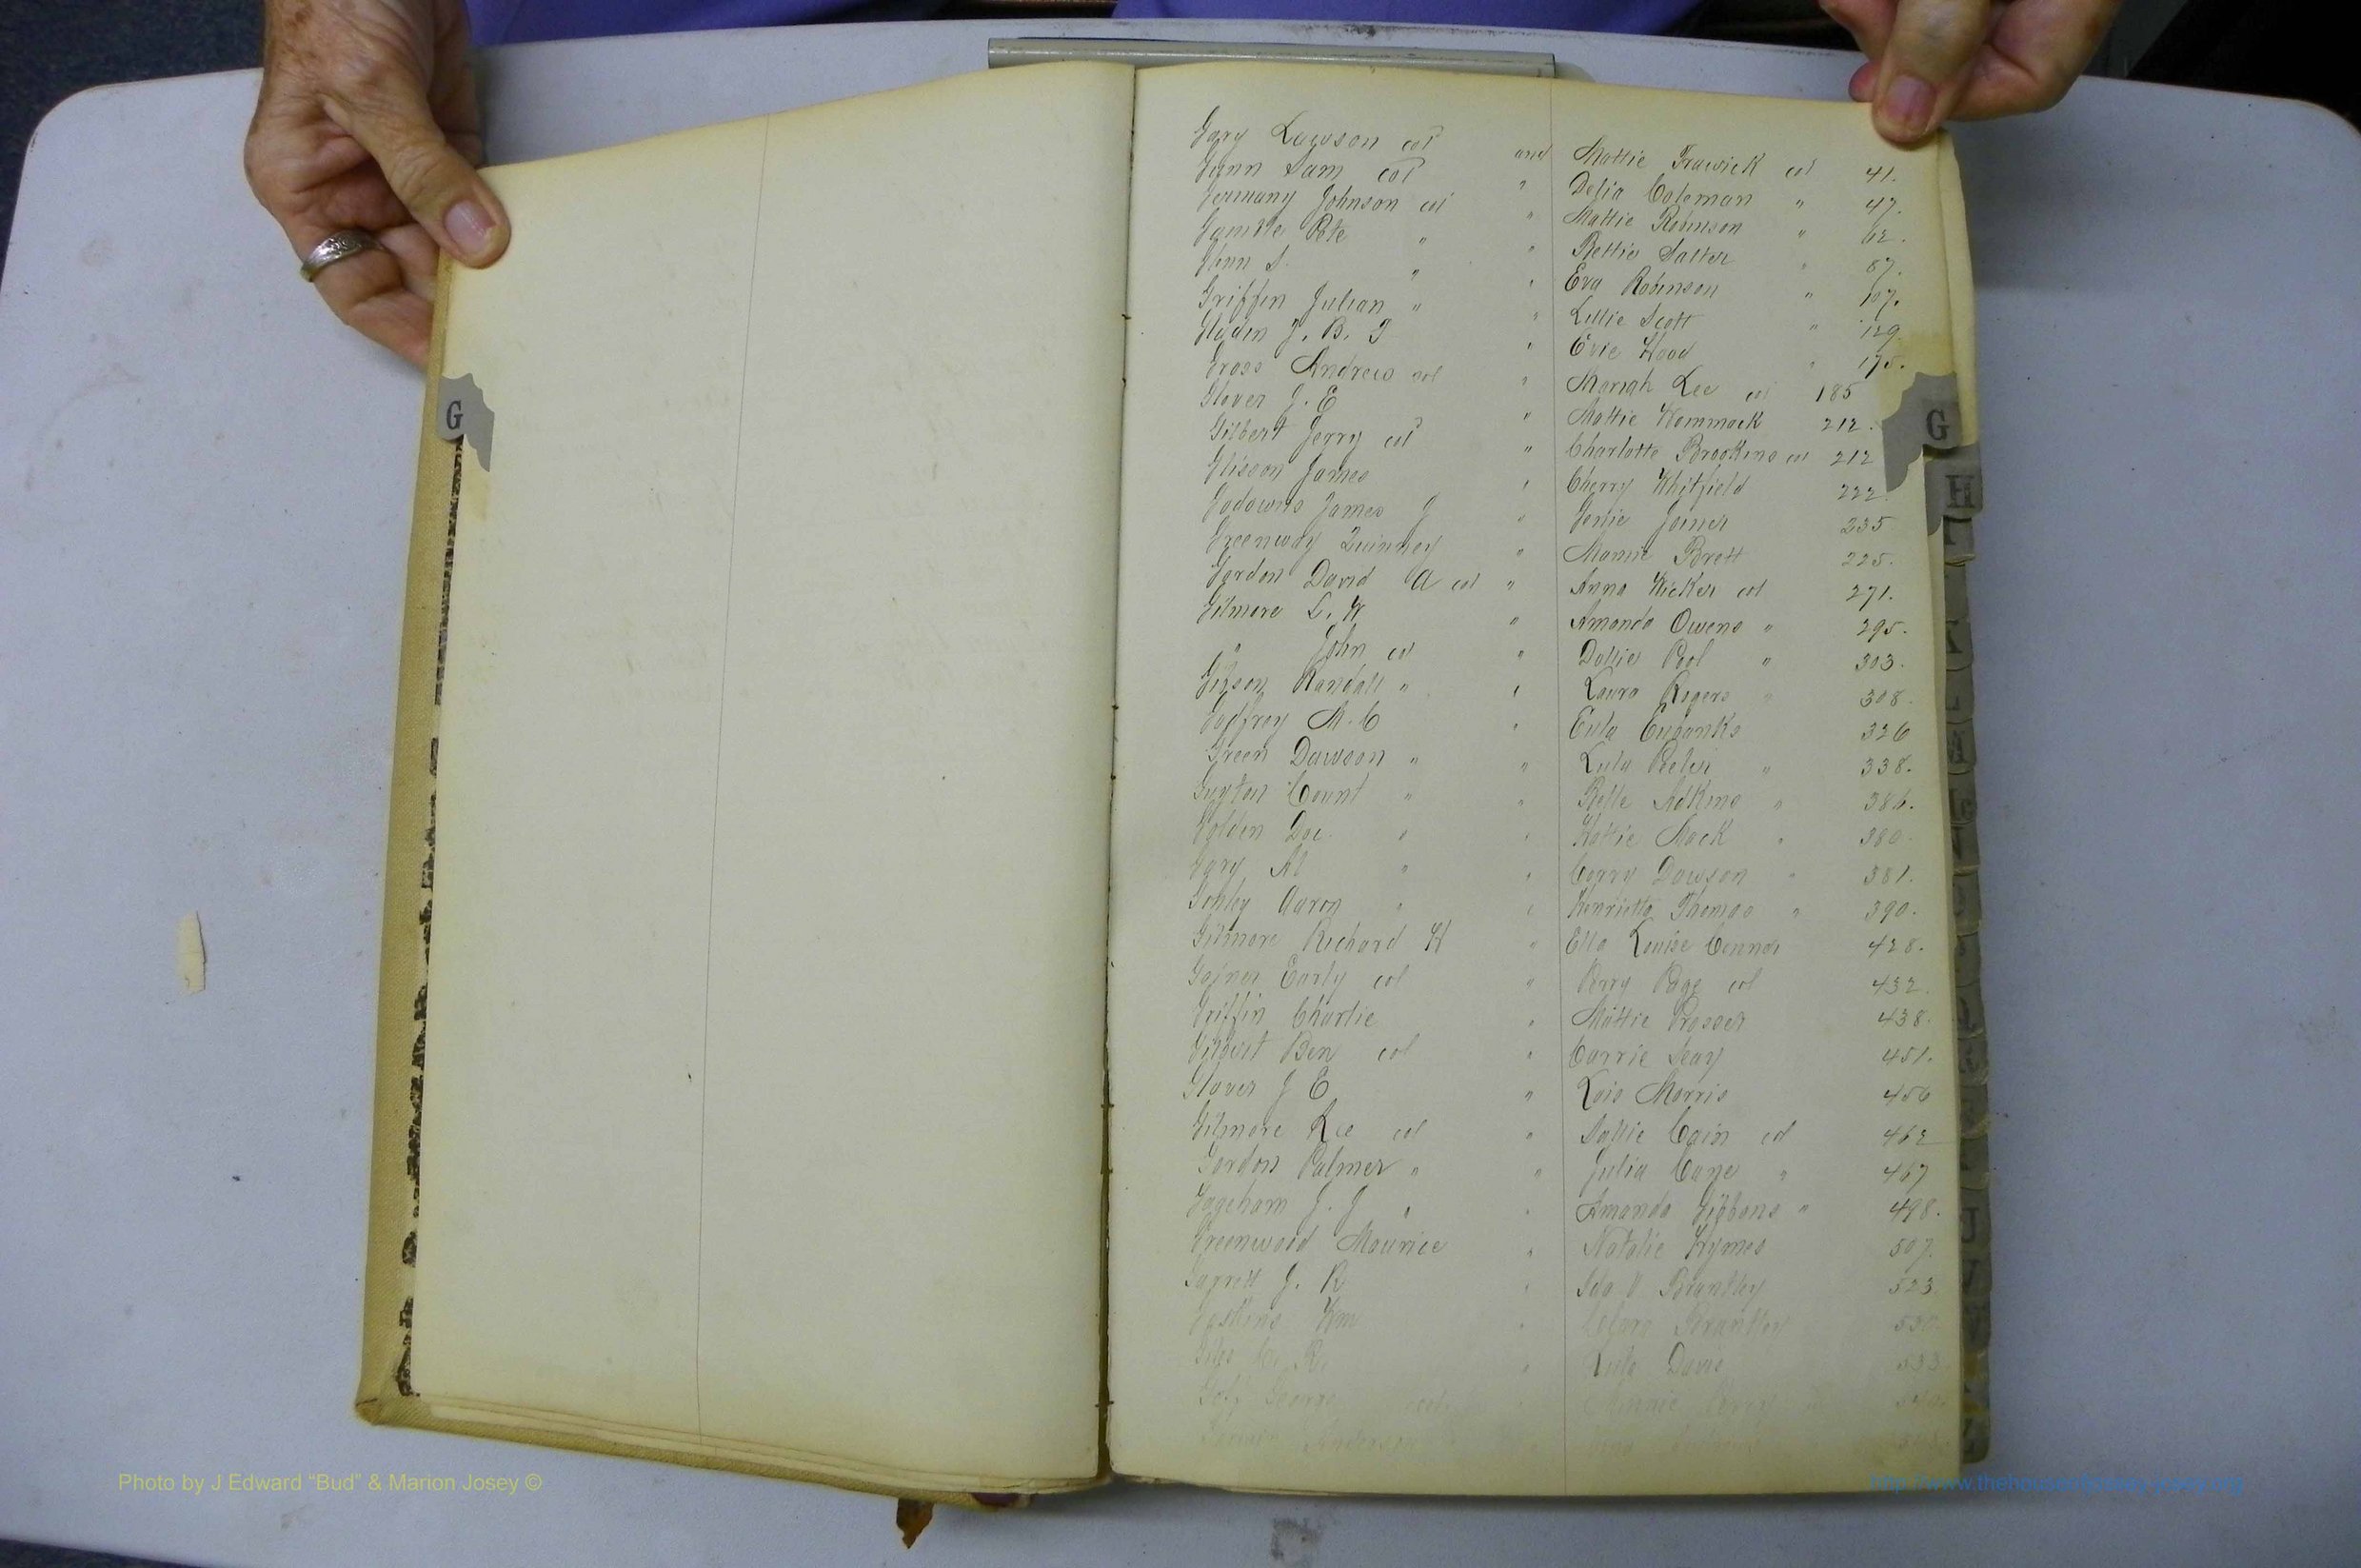 Gary Lawson col and Mattie Trawick col 41.
Gunn Sam col " Delia Coleman " 47.
Germany Johnson col " Mattie Robinson " 62.
Gamble Pete " " Bettie Salter " 87.
Glenn S. " " Eva Robinson " 107.
Griffin Julian " " Lillie Scott " 129
J. B. T " Evie Hood " 175.
Gross Andrew col " Mariah Lee col 185
Glover J. E " Mattie Hammock 212.
Gilbert Jerry col " Charlotte Brookins col 212
Glisson James " Cherry Whitfield 222.
Godowns James J " Joiner 235
Greenway Quinney " Mamie Brett 225.
Gordon David A col " Anna Wicker col 271.
Gilmore L. W " Amanda Owens " 295.
" John col " Dollie Pool " 303.
Gibson Randall " " Laura Rogers " 308.
Godfrey M. C " Eula Eubanks 326
Green Dawson " " Lula Peeler " 338.
Guyton Count " " Belle Adkins " 386.
Golden Doc. " " Hattie Mack " 380.
Gary Al " " Corry Dawson " 381.
Gonley Aaron " " Henrietta Thomas " 390.
Gilmore Richard H " Ella Louise Connor 428.
Gainer Early col " Perry Page col 432.
Griffin Charlie " Mattie Prosser 438.
Gilbert Ben col " Carrie Seay 451.
Glover J E " Lois Morris 456
Gilmore Lee col " Sallie Cain col 462
Gordon Palmer " " Julia Caye " 467
Gageham J. J " " Amanda Gibbons " 498.
Greenwood Maurice " Natalie Hymes 507.
Garrett J. R " Ida V. Brantley 523
Gaskins Wm " Brantley 530.
R. " Lula Davis 533
Goff George col "
Anderson
G
G
H
Photo by J Edward “Bud” & Marion Josey ©